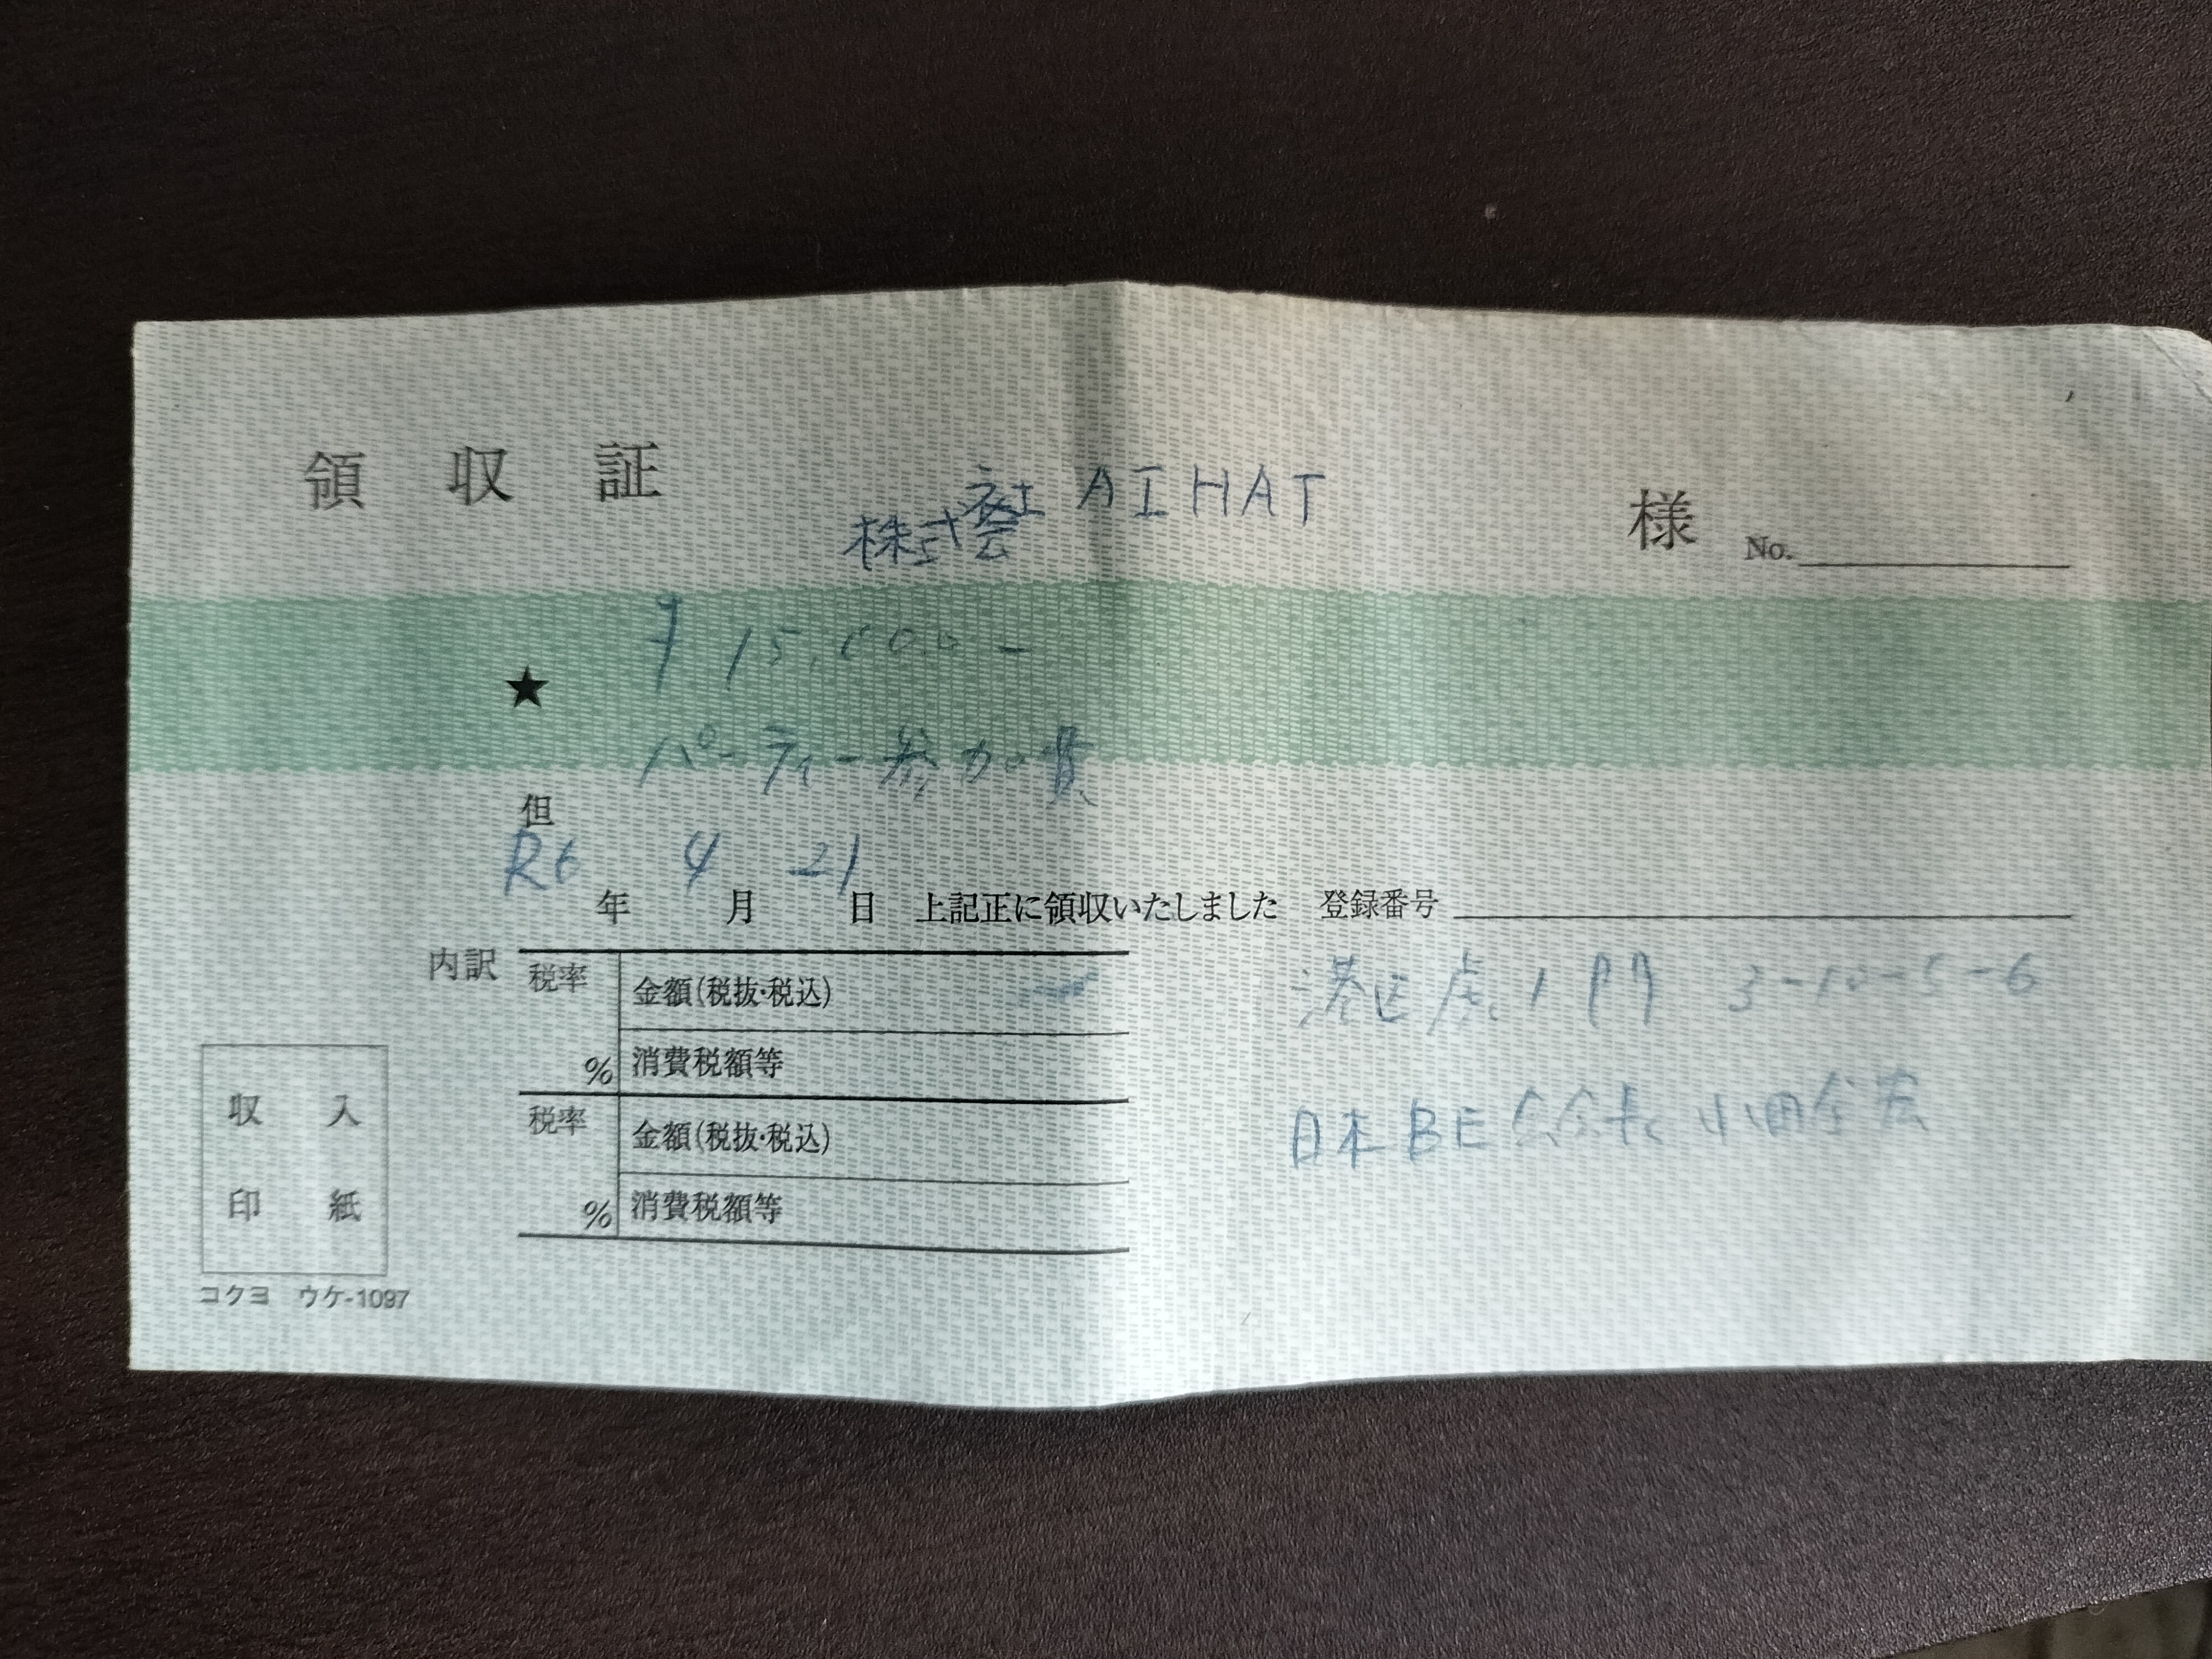 領 収 証 株式会社 AIHAT 様 No.
★ ¥15,000-
但 パーティー参加費
R6 年 4 月 21 日 上記正に領収いたしました 登録番号
内訳 税率 % 金額(税抜・税込)
消費税額等
税率 % 金額(税抜・税込)
消費税額等
港区虎ノ門 3-10-5-6
日本BE 会長 小田全宏
収 入
印 紙
コクヨ ウケ-1097